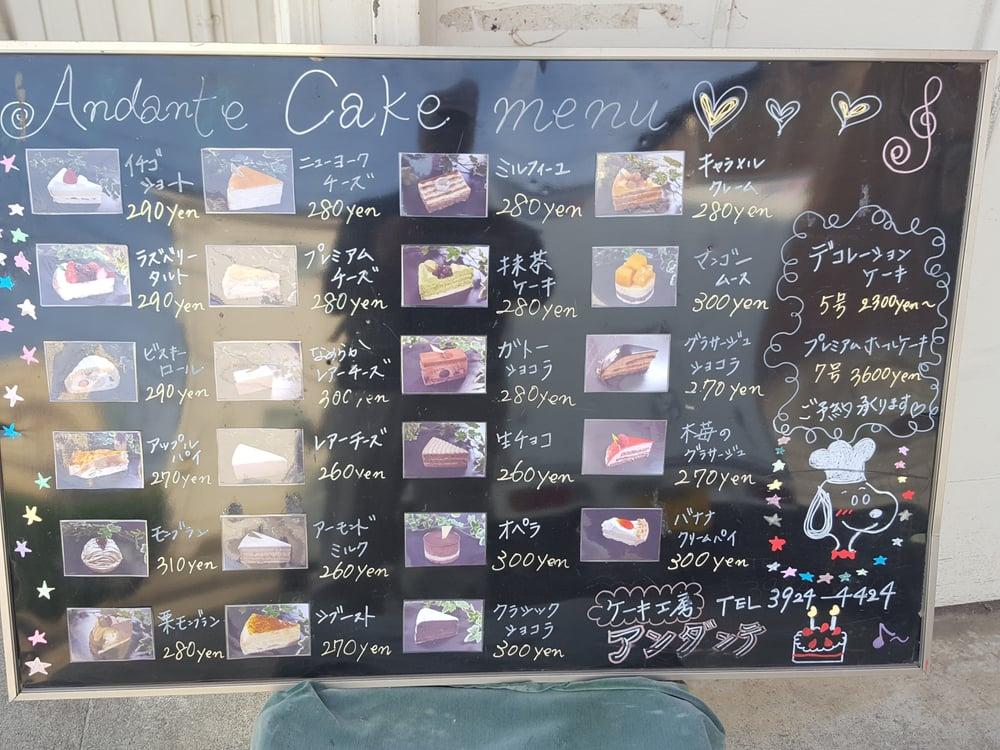 Andante Cake menu
イチゴ
ショート
290yen
ラズベリー
タルト
290yen
ビスキー
ロール
290yen
アップル
パイ
270yen
モンブラン
310yen
栗モンブラン
280yen
ニューヨーク
チーズ
280yen
プレミアム
チーズ
280yen
なめらか
レアーチーズ
300yen
レアーチーズ
260yen
アーモンド
ミルク
260yen
シブースト
270yen
ミルフィーユ
280yen
抹茶
ケーキ
280yen
ガトー
ショコラ
280yen
生チョコ
260yen
オペラ
300yen
クラシック
ショコラ
300yen
キャラメル
クレーム
280yen
マンゴー
ムース
300yen
グラサージュ
ショコラ
270yen
木苺の
グラサージュ
270yen
バナナ
クリームパイ
300yen
デコレーション
ケーキ
5号 2300yen~
プレミアムホールケーキ
7号 3600yen
ご予約承ります♡
ケーキ工房 TEL 3924-4424
アンダンテ